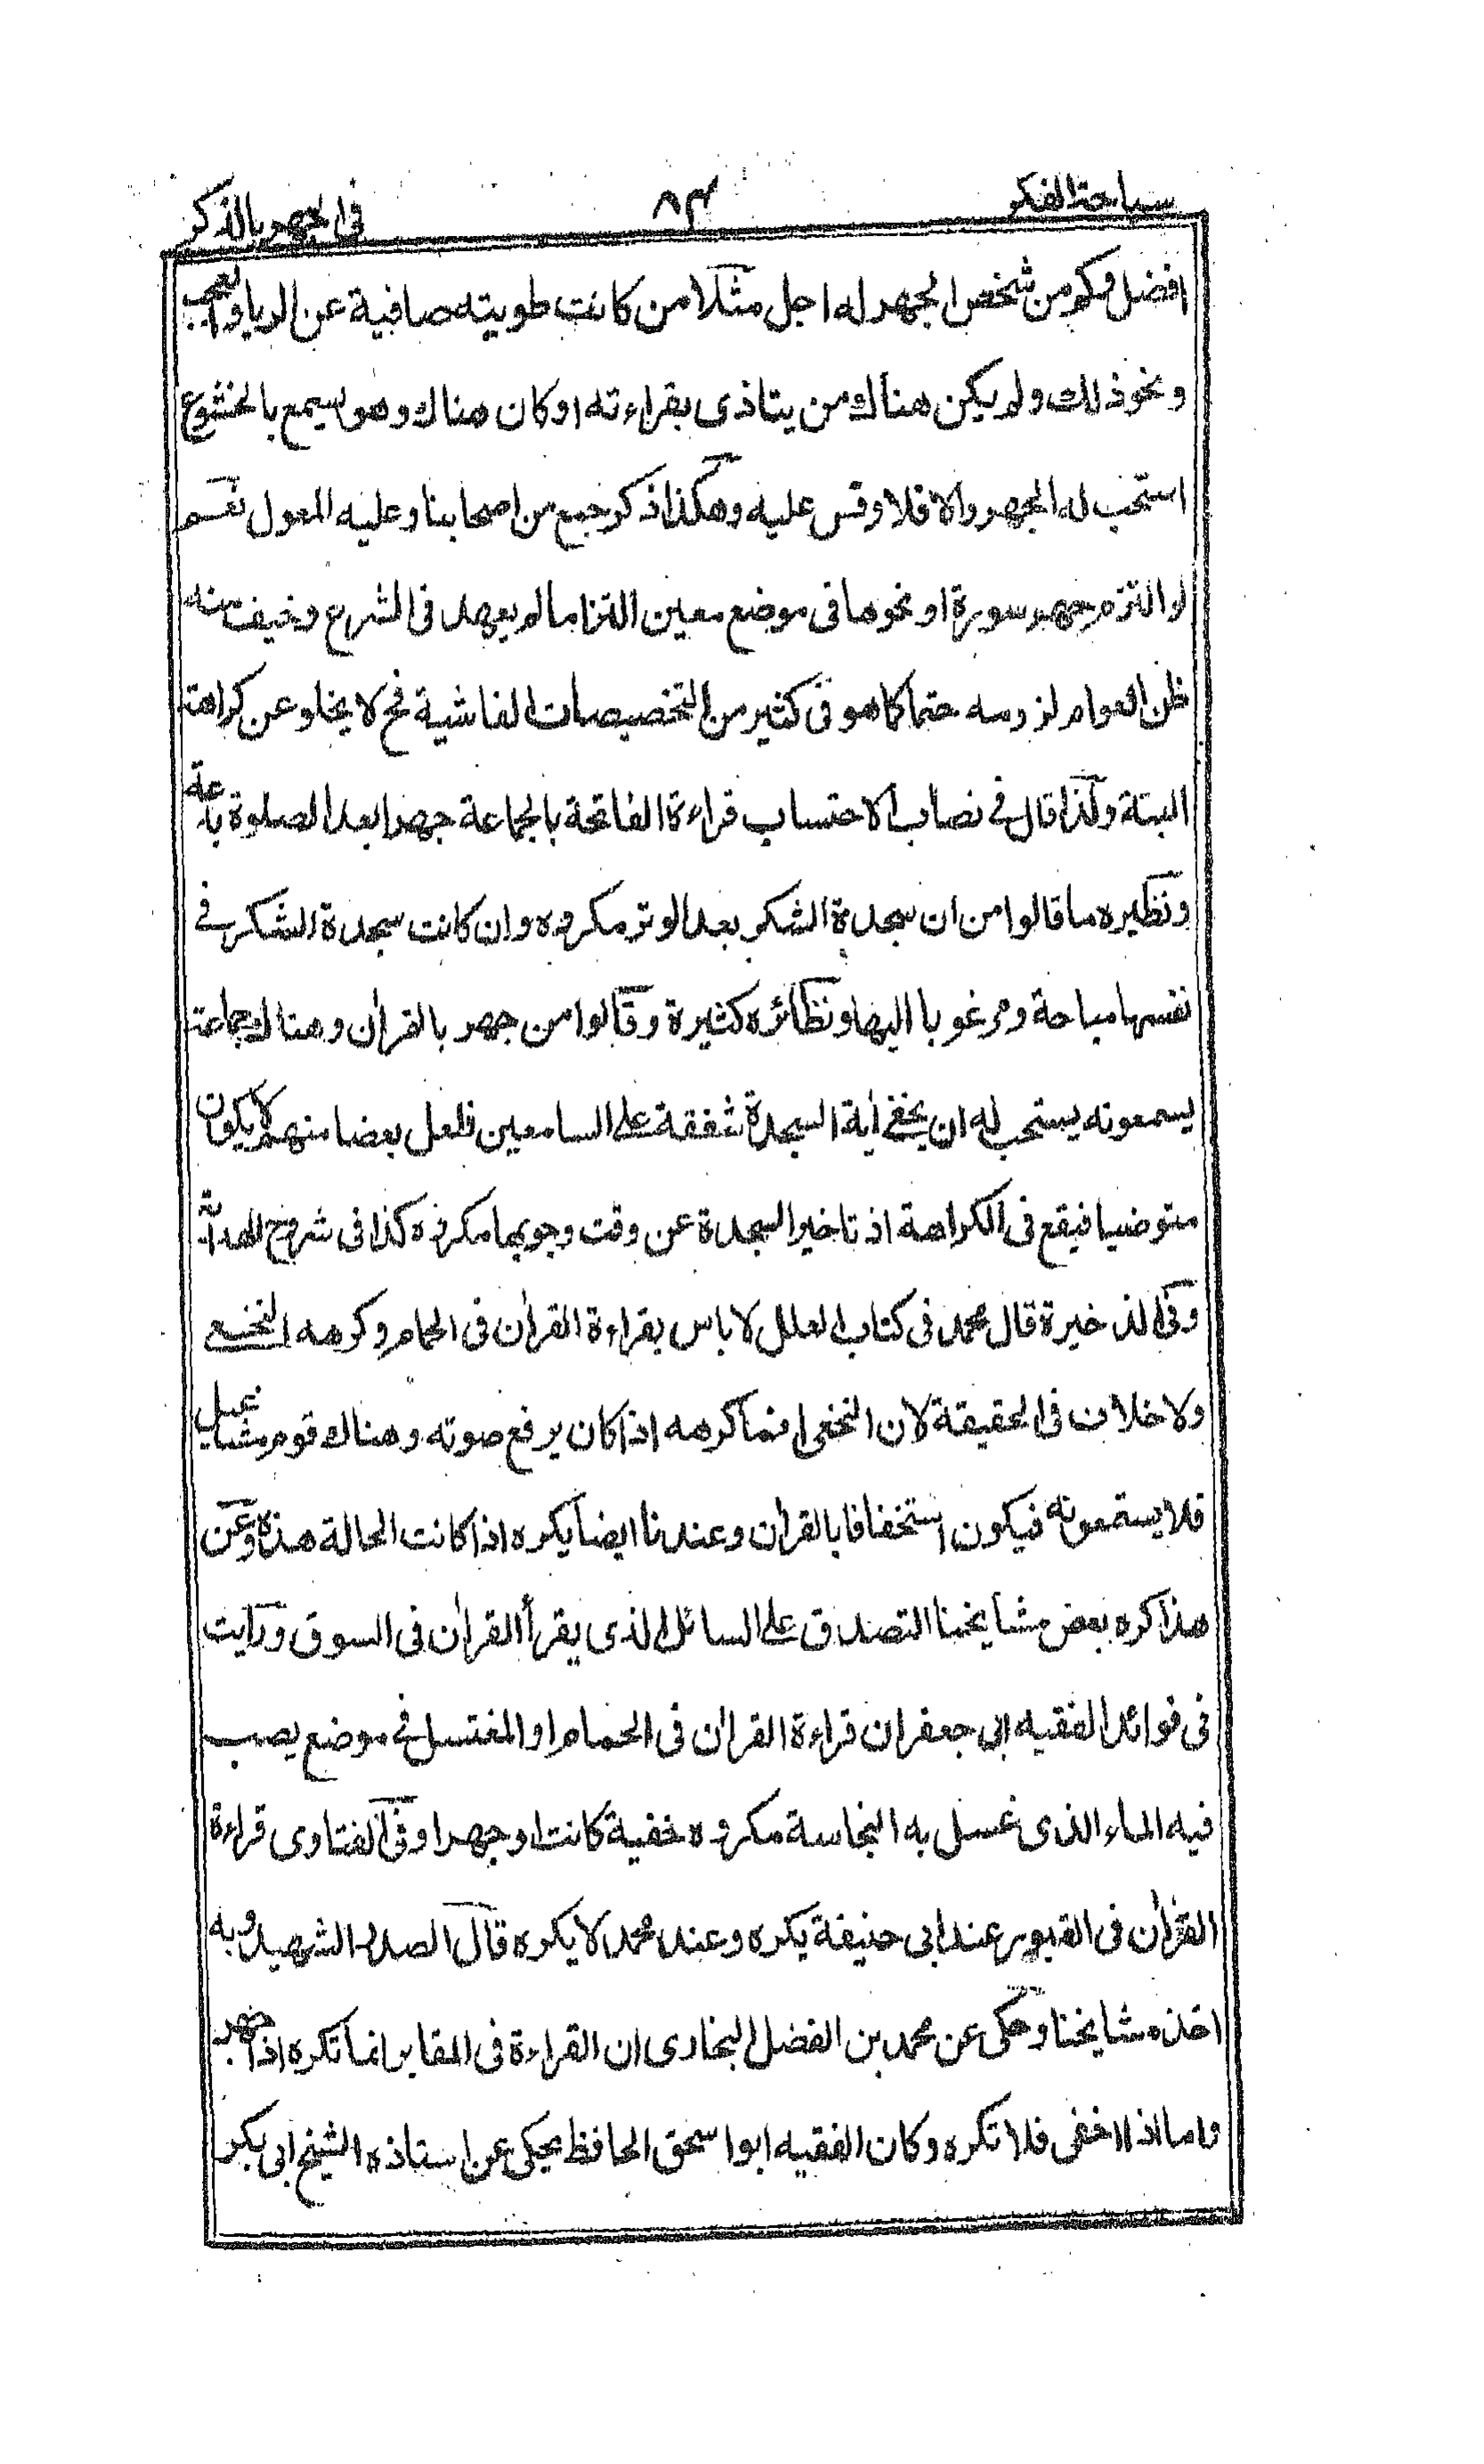 سباحة الفكر ٨٣ في الجهر بالذكر
افضل وكم من شخص الجهر له اجل مثلا من كانت طويته صافية عن الريا والعجب
ونحو ذلك ولم يكن هناك من يتاذى بقراءته او كان هناك وهو يسمع بالخشوع
استحب له الجهر والا فلا وقس عليه وهكذا ذكر جمع من اصحابنا وعليه المعول نعم
لو التزم جهر سورة او نحوها فى موضع معين التزاما لم يعهد فى الشرع وخيف منه
ظن العوام لزومه حتما كما هو فى كثير من التخصيصات الفاشية فح لا يخلو عن كراهة
البتة ولذا قال فى نصاب الاحتساب قراءة الفاتحة بالجماعة جهرا بعد الصلوة بدعة
ونظيره ما قالوا من ان سجدة الشكر بعد الوتر مكروه وان كانت سجدة الشكر فى
نفسها مباحة ومرغوبا اليها ونظائره كثيرة وقالوا من جهر بالقران وهناك جماعة
يسمعونه يستحب له ان يخفى اية السجدة شفقة على السامعين فلعل بعضا منهم لا يكون
متوضيا فيقع فى الكراهة اذ تاخير السجدة عن وقت وجوبها مكروه كذا فى شروح الهداية
وفى الذخيرة قال محمد فى كتاب العلل لا باس بقراءة القران فى الحمام وكرهه النخعى
ولا خلاف فى الحقيقة لان النخعى انما كرهه اذا كان يرفع صوته وهناك قوم مشاغيل
فلا يستمعونه فيكون استخفافا بالقران وعندنا ايضا يكره اذا كانت الحالة هذه وعن
هذا كره بعض مشايخنا التصدق على السائل الذى يقرأ القران فى السوق ورايت
فى فوائد الفقيه ابى جعفر ان قراءة القران فى الحمام او المغتسل فى موضع يصب
فيه الماء الذى غسل به النجاسة مكروه خفية كانت او جهرا وفى الفتاوى قراءة
القران فى القبور عند ابى حنيفة يكره وعند محمد لا يكره قال الصدر الشهيد وبه
اخذ مشايخنا وحكى عن محمد بن الفضل البخارى ان القراءة فى المقابر انما تكره اذا جهر
واما اذا اخفى فلا تكره وكان الفقيه ابوا سحق الحافظ يحكى عن استاذه الشيخ ابى بكر